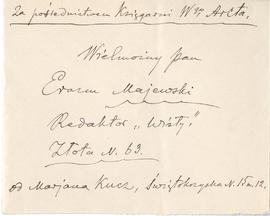 Za pośrednictwem Księgarni Wr. Arcta.
Wielmożny Pan
Erazm Majewski
Redaktor „Wisły."
Złota N. 63.
od Marjana Kucz, Świętokrzyska N. 15 m. 12.